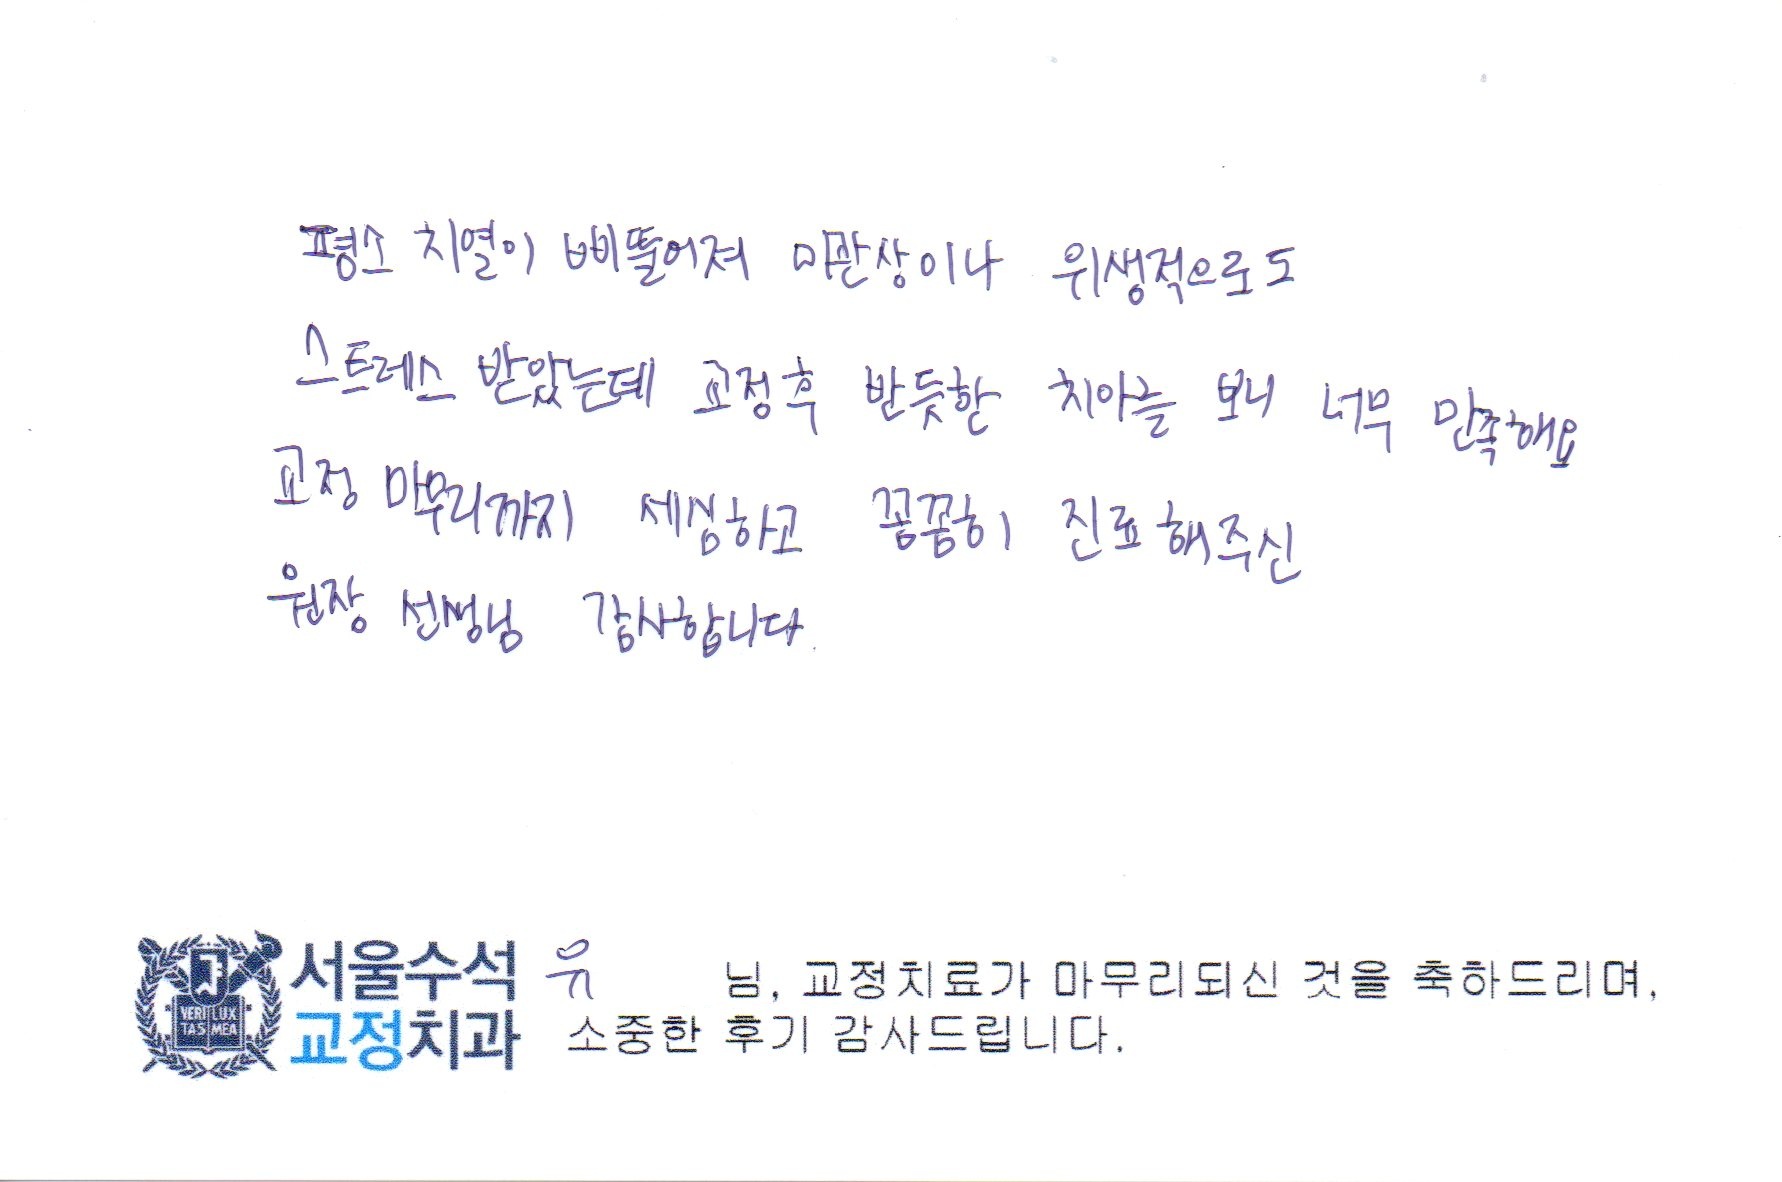 평소 치열이 삐뚤어져 미관상이나 위생적으로도
스트레스 받았는데 교정후 반듯한 치아를 보니 너무 만족해요
교정 마무리까지 세심하고 꼼꼼히 진료해주신
원장 선생님 감사합니다.
서울수석
교정치과
VERI LUX
TAS MEA
유 님, 교정치료가 마무리되신 것을 축하드리며,
소중한 후기 감사드립니다.